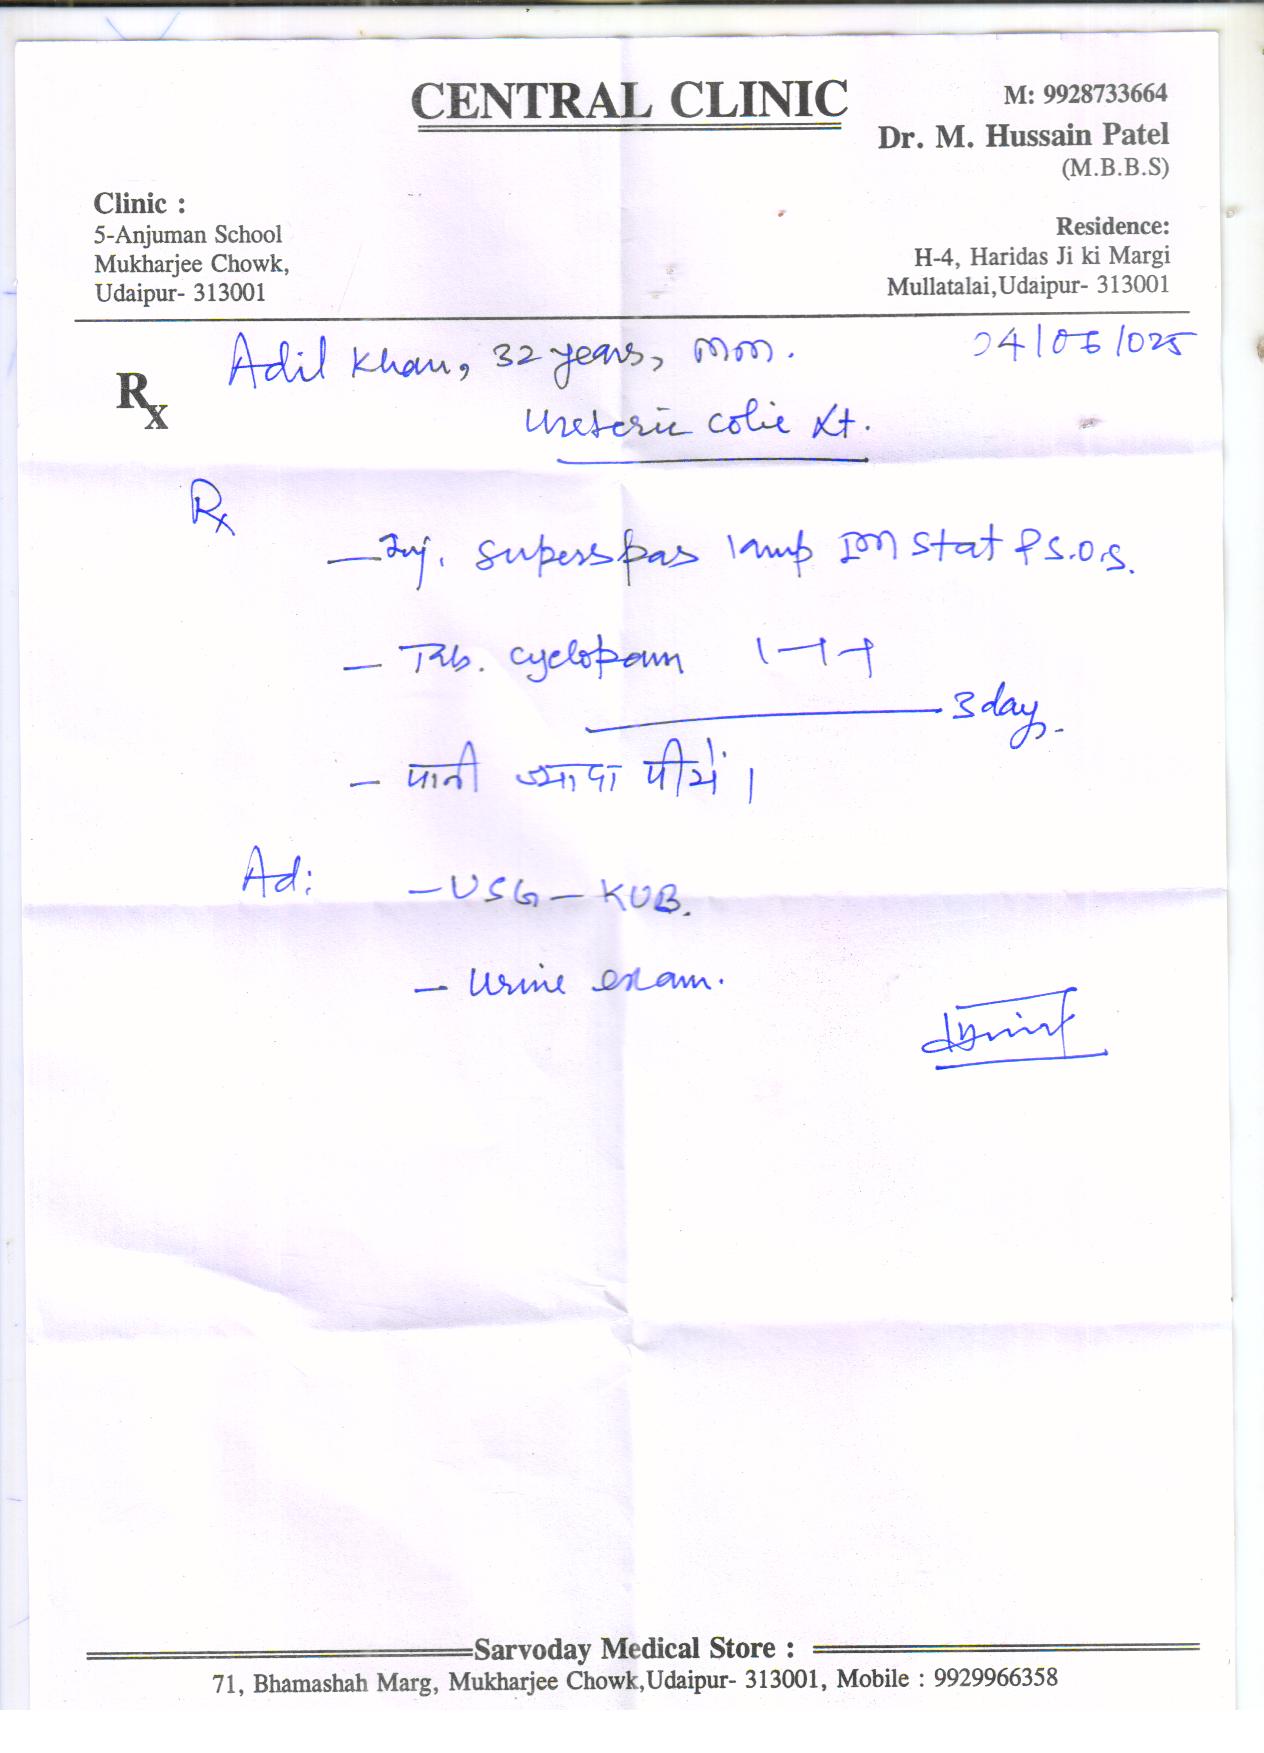 CENTRAL CLINIC
M: 9928733664
Dr. M. Hussain Patel
(M.B.B.S)
Clinic :
5-Anjuman School
Mukharjee Chowk,
Udaipur- 313001
Residence:
H-4, Haridas Ji ki Margi
Mullatalai,Udaipur- 313001
Rx
Adil Khan, 32 years,
04/06/025
Ureteric colic Lt.
Rx
- Inj. Superspas 1amp IM Stat & S.O.S.
- Tab. cyclopam 1-1-1
3 days.
- पानी ज्यादा पीयें।
Ad: - USG - KUB.
- Urine exam.
Sarvoday Medical Store :
71, Bhamashah Marg, Mukharjee Chowk,Udaipur- 313001, Mobile : 9929966358